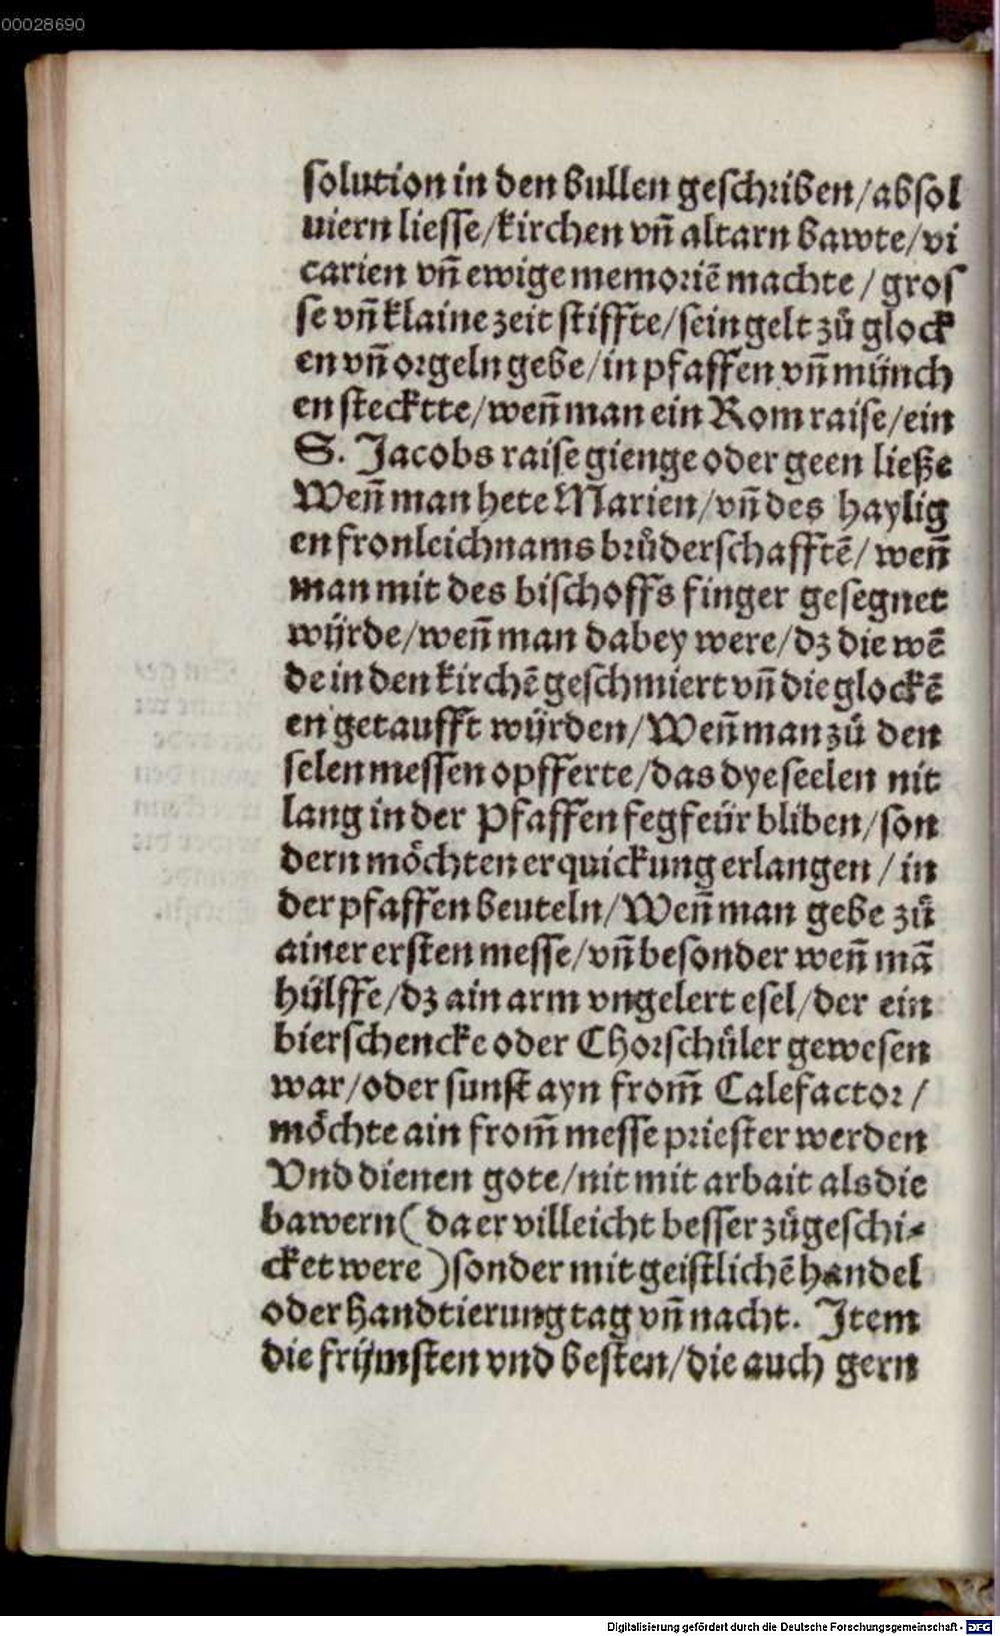 00028690
ſolution in den bullen geſchꝛiben/abſol
uiern lieſſe/kirchen vñ altarn bawte/vi
carien vñ ewige memoꝛiē machte / groſ
ſe vñ klaine zeit ſtiffte/ſein gelt zů glock
en vñ oꝛgeln gebe/in pfaffen vñ münch
en ſtecktte/weñ man ein Rom raiſe/ein
S. Jacobs raiſe gienge oder geen ließe
Weñ man hete Marien/vñ des haylig
en fronleichnams bꝛůderſchafftē/ weñ
man mit des biſchoffs finger geſegnet
würde/weñ man dabey were/dz die wē
de in den kirchē geſchmiert vñ die glockē
en getaufft würden/Weñ man zů den
ſelen meſſen opfferte/das dye ſeelen nit
lang in der Pfaffen fegfeür bliben/ſon
dern möchten erquickung erlangen / in
der pfaffen beuteln/Weñ man gebe zů
ainer erſten meſſe/vñ beſonder weñ mā
hülffe/dz ain arm vngelert eſel/der ein
bierſchencke oder Choꝛſchůler geweſen
war/oder ſunſt ayn from̃ Calefactoꝛ /
möchte ain from̃ meſſe pꝛieſter werden
Vnd dienen gote/nit mit arbait als die
bawern( da er villeicht beſſer zůgeſchi⸗
cket were )ſonder mit geiſtlichē handel
oder handtierung tag vñ nacht. Item
die frümſten vnd beſten/die auch gern
Digitalisierung gefördert durch die Deutsche Forschungsgemeinschaft - DFG